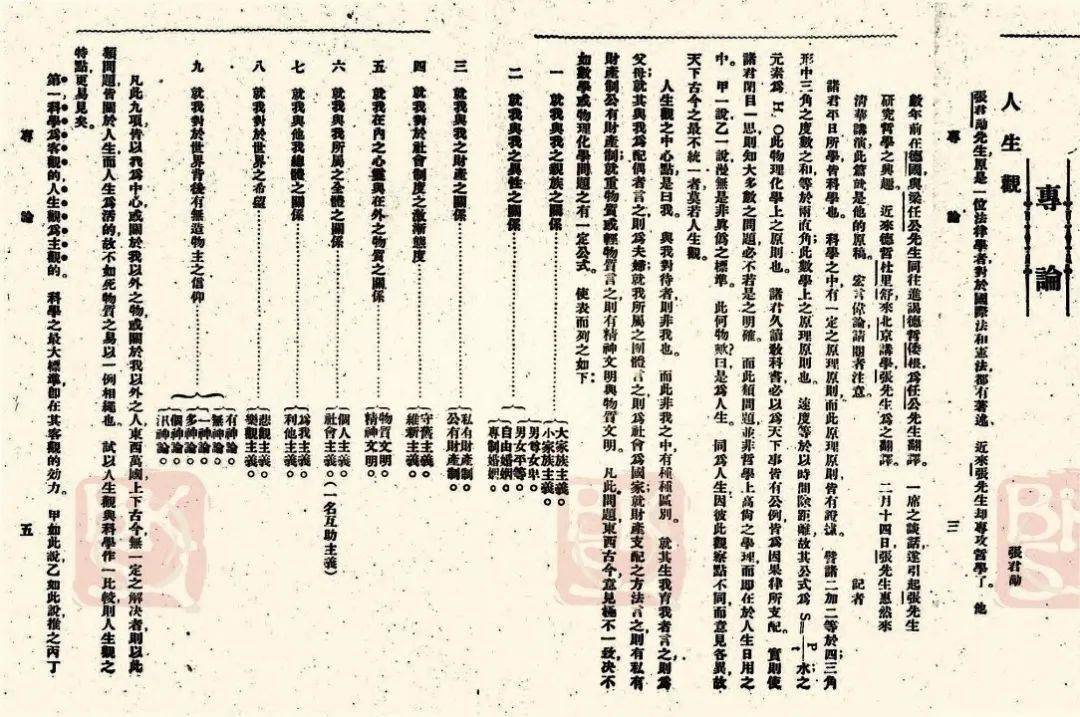 專論
人生觀
張君勱
張君勱先生原是一位法律學者對於國際法和憲法都有著述。近來張先生却專攻哲學了。他
數年前在德國與梁任公先生同往進謁德哲倭根爲任公先生翻譯。一席之談話遂引起張先生
研究哲學之興趣。近來德哲杜里舒來北京講學張先生爲之翻譯。二月十四日張先生惠然來
清華講演此篇就是他的原稿。宏言偉論請閱者注意。記者
諸君平日所學皆科學也。科學之中有一定之原理原則而此原理原則皆有證據。譬諸二加二等於四三角
形中三角之度數之和等於兩直角此數學上之原理原則也。速度等於以時間除距離故其公式爲 S=P/t 水之
元素爲 H₂O 此物理化學上之原則也。諸君久讀教科書必以爲天下事皆有公例皆爲因果律所支配。實則使
諸君閉目一思則知大多數之問題必不若是之明確。而此類問題並非哲學上高尚之學理而即在於人生日用之
中。甲一說乙一說漫無是非眞僞之標準。此何物歟?曰是爲人生。同爲人生因彼此觀察點不同而意見各異故
天下古今之最不統一者莫若人生觀。
人生觀之中心點是曰我。與我對待者則非我也。而此非我之中有種種區別。就其生我育我者言之則爲
父母就其與我爲配偶者言之則爲夫婦就我所屬之團體言之則爲社會爲國家就財產支配之方法言之則有私有
財產制公有財產制就重物質或輕物質言之則有精神文明與物質文明。凡此問題東西古今意見極不一致決不
如數學或物理化學問題之有一定公式。使表而列之如下：
一 就我與我之親族之關係 大家族主義。小家族主義。
二 就我與我之異性之關係 男尊女卑。男女平等。自由婚姻。專制婚姻。
三 就我與我之財產之關係 私有財產制。公有財產制。
四 就我對於社會制度之激漸態度 守舊主義。維新主義。
五 就我在內之心靈與在外之物質之關係 物質文明。精神文明。
六 就我與我所屬之全體之關係 個人主義。社會主義。(一名互助主義)
七 就我與他我總體之關係 爲我主義。利他主義。
八 就我對於世界之希望 悲觀主義。樂觀主義。
九 就我對於世界背後有無造物主之信仰 有神論。無神論。一神論。多神論。個神論。汎神論。
凡此九項皆以我爲中心或關於我以外之物或關於我以外之人東西萬國上下古今無一定之解決者則以此
類問題皆關於人生而人生爲活的故不如死物質之易以一例相繩也。試以人生觀與科學作一比較則人生觀之
特點更易見矣。
第一科學爲客觀的人生觀爲主觀的。科學之最大標準即在其客觀的効力。甲如此說乙如此說推之丙丁
專論
三
專論
五